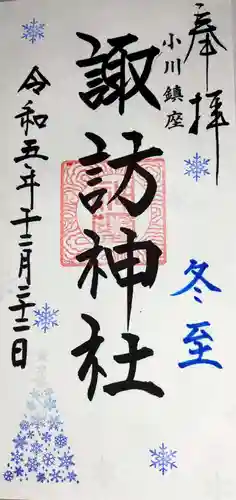 奉拝
小川鎮座
諏訪神社
冬至
令和五年十二月二十二日